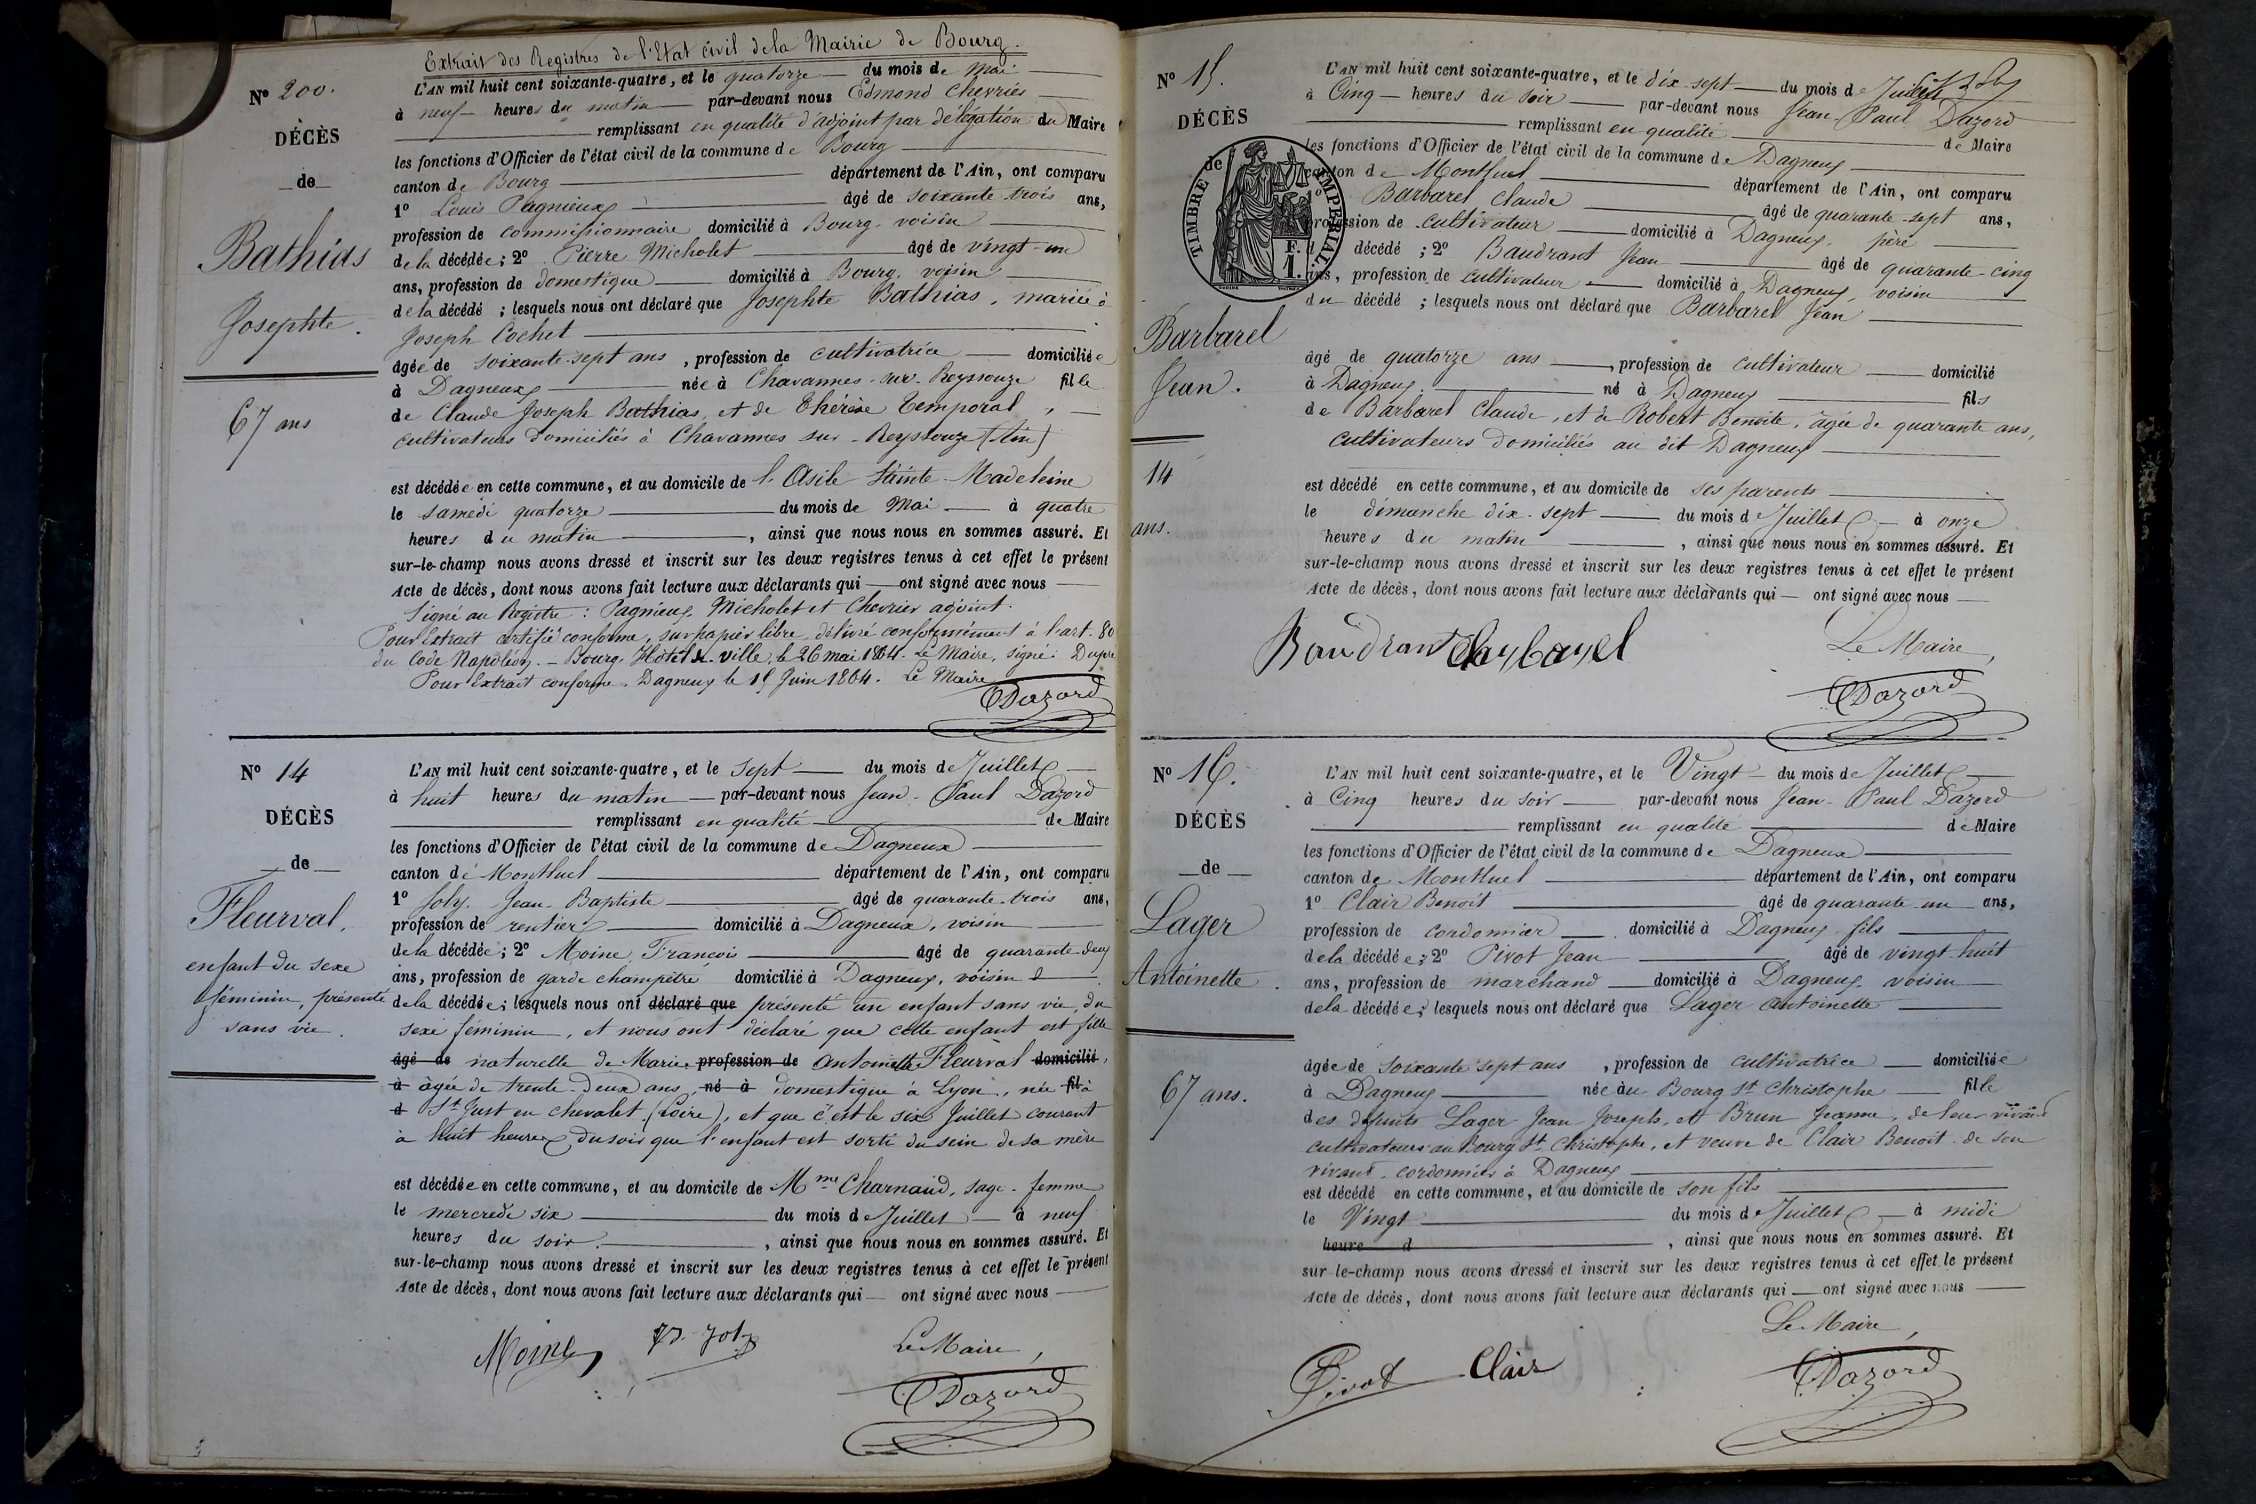 Extrait des Registres de l'Etat civil de la Mairie de Bourg.
N° 200.
DÉCÈS
de
Bathias
Josephte.
67 ans
L'AN mil huit cent soixante-quatre, et le quatorze du mois de Mai
à neuf heures du matin par-devant nous Edmond Chevrier
remplissant en qualité d'adjoint par délégation du Maire
les fonctions d'Officier de l'état civil de la commune de Bourg
canton de Bourg département de l'Ain, ont comparu
1° Louis Pagnieux âgé de soixante trois ans,
profession de commissionnaire domicilié à Bourg, voisin
de la décédée; 2° Pierre Micholet âgé de vingt-un
ans, profession de domestique domicilié à Bourg, voisin
de la décédé ; lesquels nous ont déclaré que Josephte Bathias, mariée à
Joseph Cochet
âgée de soixante-sept ans, profession de cultivatrice domiciliée
à Dagneux née à Chavannes-sur-Reyssouze fille
de Claude Joseph Bathias, et de Thérèse Temporal,
cultivateurs domiciliés à Chavannes sur-Reyssouze (Ain)
est décédée en cette commune, et au domicile de l'Asile Sainte-Madeleine
le samedi quatorze du mois de Mai à quatre
heures du matin, ainsi que nous nous en sommes assuré. Et
sur-le-champ nous avons dressé et inscrit sur les deux registres tenus à cet effet le présent
Acte de décès, dont nous avons fait lecture aux déclarants qui ont signé avec nous
Signé au Registre : Pagnieux, Micholet et Chevrier adjoint.
Pour Extrait certifié conforme, sur papier libre, délivré conformément à l'art. 80
du Code Napoléon. - Bourg, Hôtel de ville, le 26 mai 1864. Le Maire, signé: Dupré
Pour Extrait conforme. Dagneux le 15 Juin 1864. Le Maire
Dazord
N° 14
DÉCÈS
de
Fleurval,
enfant du sexe
féminin, présenté
sans vie.
L'AN mil huit cent soixante-quatre, et le sept du mois de Juillet
à huit heures du matin par-devant nous Jean-Paul Dazord
remplissant en qualité de Maire
les fonctions d'Officier de l'état civil de la commune de Dagneux
canton de Montluel département de l'Ain, ont comparu
1° Joly, Jean-Baptiste âgé de quarante-trois ans,
profession de rentier domicilié à Dagneux, voisin
de la décédée; 2° Moine, François âgé de quarante-deux
ans, profession de garde champêtre domicilié à Dagneux, voisin
de la décédée; lesquels nous ont déclaré que présenté un enfant sans vie, du
sexe féminin, et nous ont déclaré que cette enfant est fille
âgé de naturelle de Marie profession de Antoinette Fleurval domicilié,
à âgée de trente-deux ans, né à domestique à Lyon, née fil à
d St Just en chevalet (Loire), et que c'est le six Juillet courant
à huit heures du soir que l'enfant est sorti du sein de sa mère
est décédée en cette commune, et au domicile de Mme Charnaud, sage-femme
le mercredi six du mois de Juillet à neuf
heures du soir, ainsi que nous nous en sommes assuré. Et
sur-le-champ nous avons dressé et inscrit sur les deux registres tenus à cet effet le présent
Acte de décès, dont nous avons fait lecture aux déclarants qui ont signé avec nous
Moine Joly Le Maire,
Dazord
N° 15.
DÉCÈS
de
TIMBRE IMPÉRIAL
F.
1.
Barbarel
Jean.
14
ans.
L'AN mil huit cent soixante-quatre, et le dix-sept du mois de Juillet
à Cinq heures du soir par-devant nous Jean-Paul Dazord
remplissant en qualité de Maire
les fonctions d'Officier de l'état civil de la commune de Dagneux
canton de Montluel département de l'Ain, ont comparu
1° Barbarel Claude âgé de quarante-sept ans,
profession de cultivateur domicilié à Dagneux, père
d décédé ; 2° Baudrant Jean âgé de quarante-cinq
ans, profession de cultivateur domicilié à Dagneux, voisin
du décédé ; lesquels nous ont déclaré que Barbarel Jean
âgé de quatorze ans, profession de cultivateur domicilié
à Dagneux né à Dagneux fils
de Barbarel Claude, et de Robert Benoite, âgée de quarante ans,
cultivateurs domiciliés au dit Dagneux
est décédé en cette commune, et au domicile de ses parents
le dimanche dix-sept du mois de Juillet à onze
heures du matin, ainsi que nous nous en sommes assuré. Et
sur-le-champ nous avons dressé et inscrit sur les deux registres tenus à cet effet le présent
Acte de décès, dont nous avons fait lecture aux déclarants qui ont signé avec nous
Baudrant Barbarel Le Maire,
Dazord
N° 16.
DÉCÈS
de
Lager
Antoinette.
67 ans.
L'AN mil huit cent soixante-quatre, et le Vingt du mois de Juillet
à Cinq heures du soir par-devant nous Jean-Paul Dazord
remplissant en qualité de Maire
les fonctions d'Officier de l'état civil de la commune de Dagneux
canton de Montluel département de l'Ain, ont comparu
1° Clair Benoit âgé de quarante un ans,
profession de cordonnier domicilié à Dagneux, fils
de la décédée; 2° Pivot Jean âgé de vingt-huit
ans, profession de marchand domicilié à Dagneux, voisin
de la décédée; lesquels nous ont déclaré que Lager Antoinette
âgée de soixante sept ans, profession de cultivatrice domiciliée
à Dagneux née au Bourg St Christophe fille
des défunts Lager Jean Joseph, et Brun Jeanne, de leur vivant
cultivateurs au Bourg St Christophe, et veuve de Clair Benoit de son
vivant, cordonnier à Dagneux
est décédé en cette commune, et au domicile de son fils
le Vingt du mois de Juillet à midi
heure d, ainsi que nous nous en sommes assuré. Et
sur-le-champ nous avons dressé et inscrit sur les deux registres tenus à cet effet le présent
Acte de décès, dont nous avons fait lecture aux déclarants qui ont signé avec nous
Le Maire,
Pivot Clair Dazord